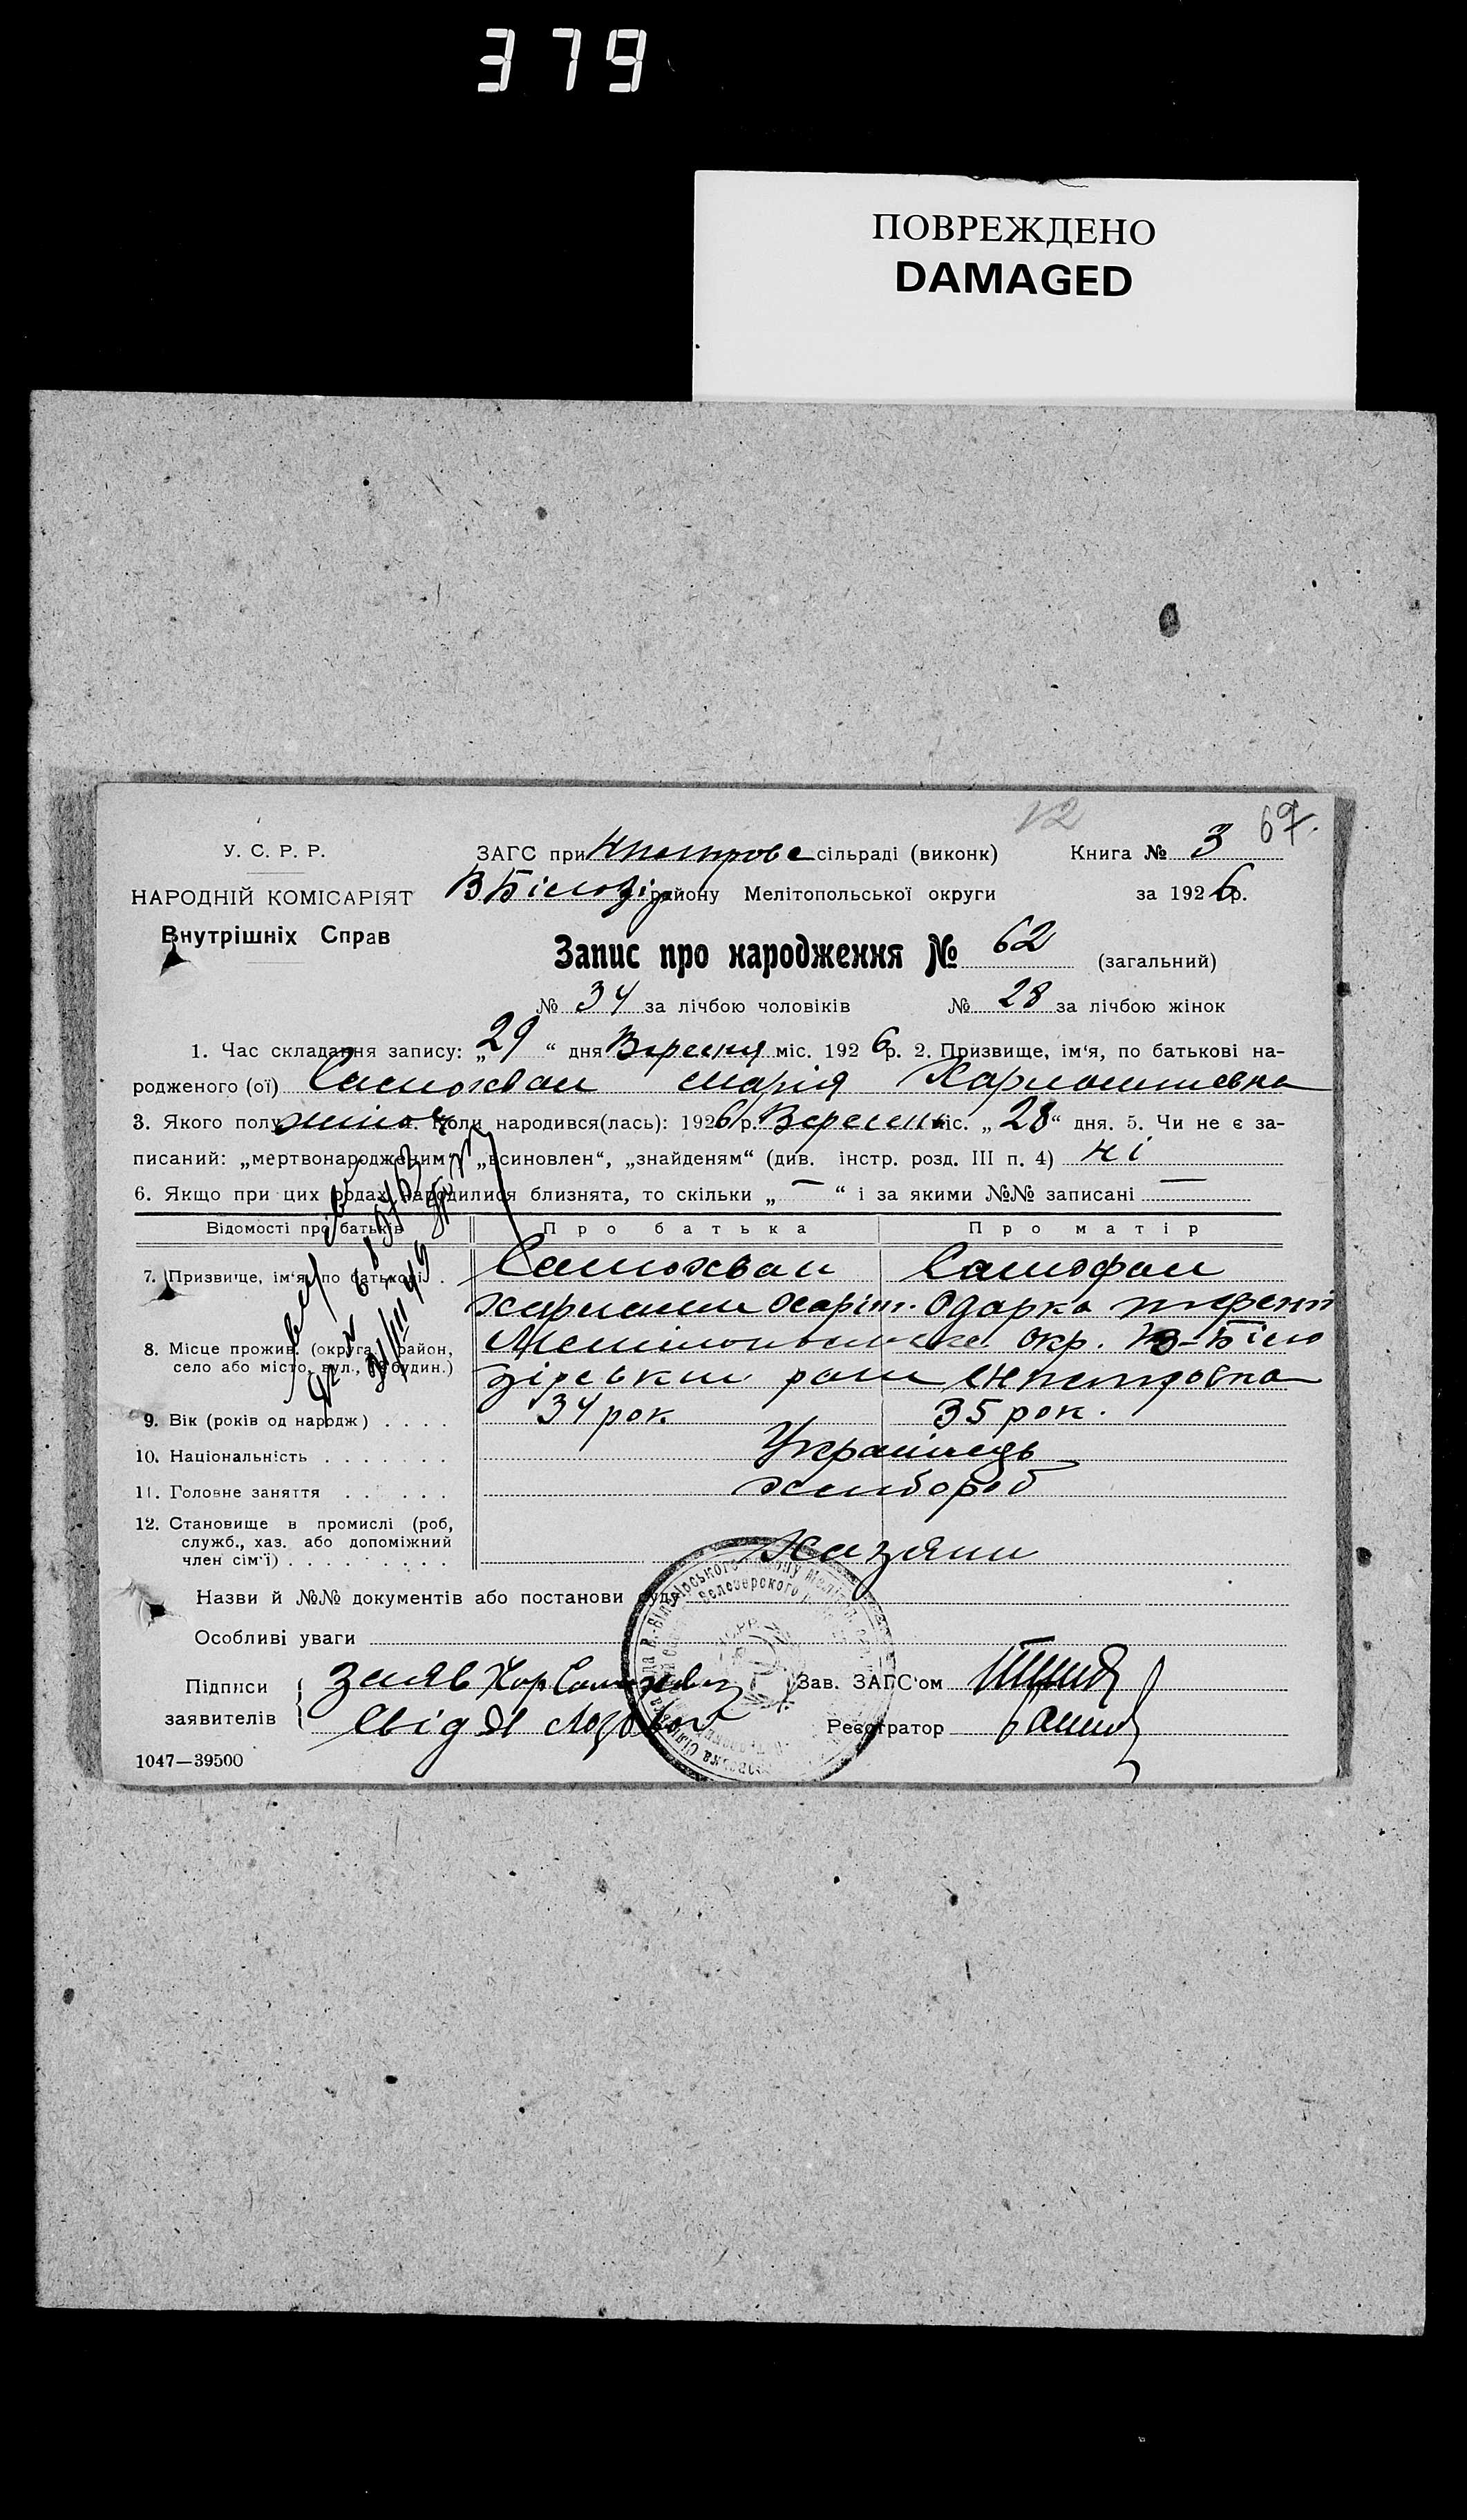 379
ПОВРЕЖДЕНО
DAMAGED
12
67.
У. С. Р. Р.
ЗАГС при Нпетрове сільраді (виконк) Книга № 3
НАРОДНІЙ КОМІСАРІЯТ
В Білозі району Мелітопольської округи за 1926 р.
Внутрішніх Справ
Запис про народження № 62 (загальний)
№ 34 за лічбою чоловіків № 28 за лічбою жінок
1. Час складання запису: „29“ дня Вересня міс. 1926 р. 2. Призвище, ім‘я, по батькові на-
родженого (ої) Самохвал Марія
3. Якого полу жіноч 4. Коли народився(лась): 1926 р. Вересня міс. „28“ дня. 5. Чи не є за-
писаний: „мертвонародженим“, „всиновлен“, „знайденям“ (див. інстр. розд. III п. 4) ні
6. Якщо при цих родах народилися близнята, то скільки „—“ і за якими №№ записані —
Відомості про батьків Про батька Про матір
7. Призвище, ім‘я, по батькові . Самохвал
Одарка
8. Місце прожив. (округа, район, окр. В-Біло
село або місто, вул., № будин.) зірський
9. Вік (років од народж) . . . . 34 рок 35 рок.
10. Національність . . . . . . . Українець
11. Головне заняття . . . . . . хлибороб
12. Становище в промислі (роб,
служб., хаз. або допоміжний
член сім‘ї) . . . . . . . . . Хазяин
Назви й №№ документів або постанови суду
Особливі уваги
Підписи
заявителів
Заяв Хар Самохвал Зав. ЗАГС‘ом
Свід Я Лозовой Реєстратор
1047—39500